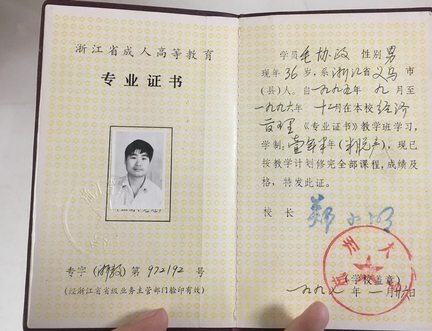 浙江省成人高等教育
专业证书
专字(浙教)第 972192 号
(经浙江省省级业务主管部门验印有效)
学员毛协政 性别男
现年36岁,系浙江省义乌市
(县)人。自一九九五年九月至
一九九六年十二月在本校经济
管理《专业证书》教学班学习,
学制:壹年半年(半脱产),现已
按教学计划修完全部课程,成绩及
格,特发此证。
校长
(学校盖章)
一九九七年一月廿六日